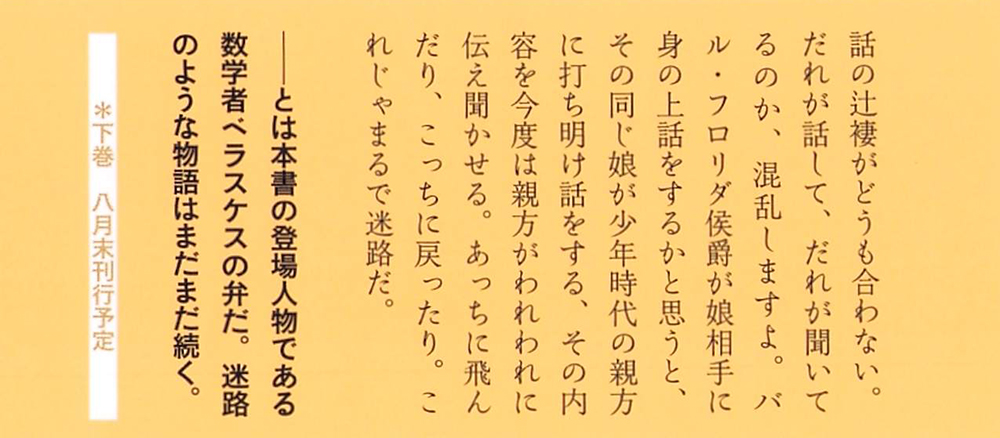 話の辻褄がどうも合わない。
だれが話して、だれが聞いて
るのか、混乱しますよ。バ
ル・フロリダ侯爵が娘相手に
身の上話をするかと思うと、
その同じ娘が少年時代の親方
に打ち明け話をする、その内
容を今度は親方がわれわれに
伝え聞かせる。あっちに飛ん
だり、こっちに戻ったり。こ
れじゃまるで迷路だ。
――とは本書の登場人物である
数学者ベラスケスの弁だ。迷路
のような物語はまだまだ続く。
＊下巻　八月末刊行予定